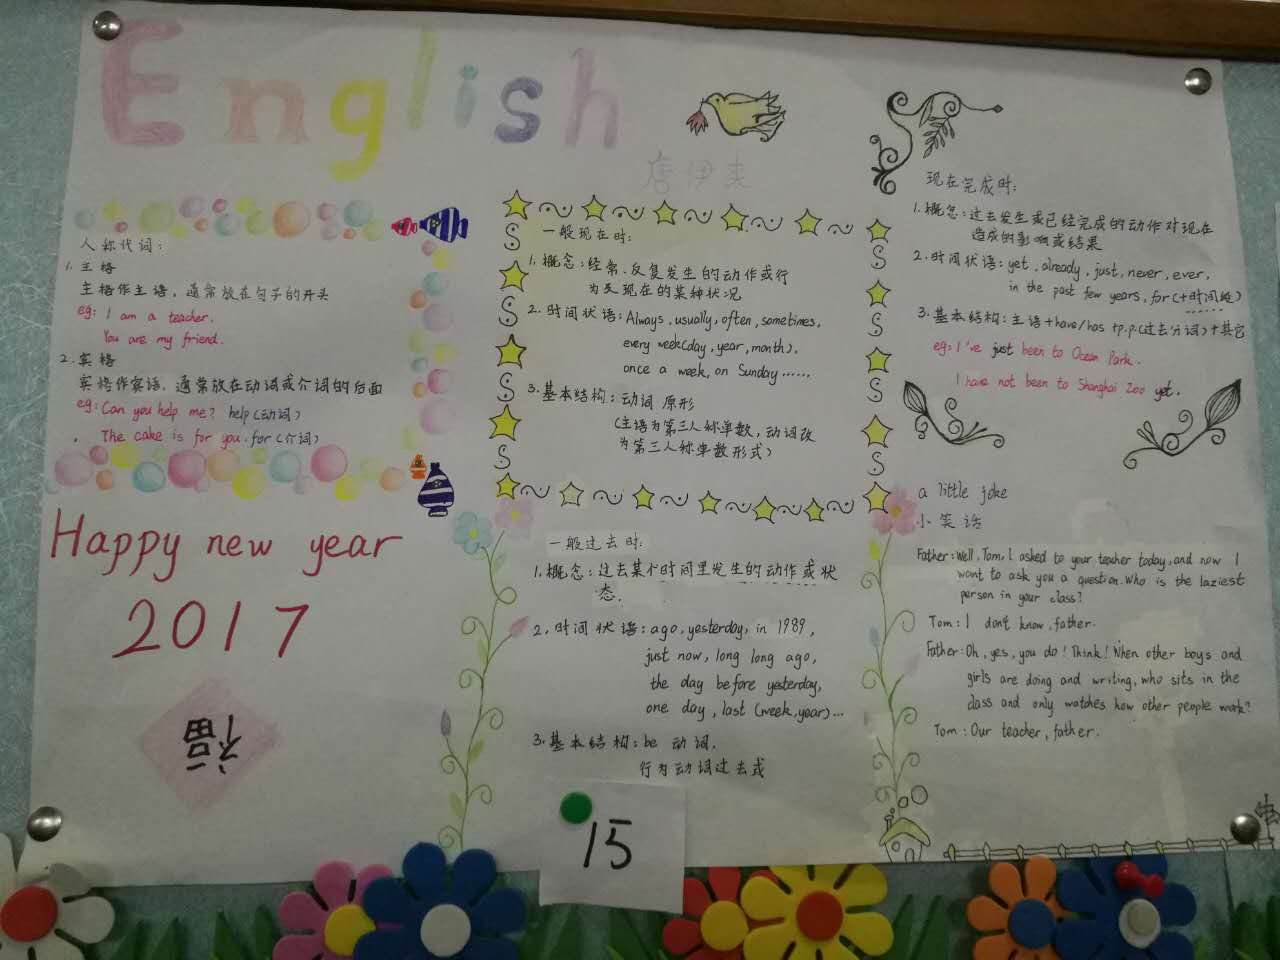 English
唐伊夫
人称代词：
1. 主格
主格作主语，通常放在句子的开头
eg: I am a teacher.
You are my friend.
2. 宾格
宾格作宾语，通常放在动词或介词的后面
eg: Can you help me? help(动词)
The cake is for you. for(介词)
Happy new year
2017
福
一般现在时：
1. 概念：经常、反复发生的动作或行
为及现在的某种状况
2. 时间状语：Always, usually, often, sometimes,
every week(day, year, month),
once a week, on Sunday ……
3. 基本结构：动词 原形
(主语为第三人称单数，动词改
为第三人称单数形式)
一般过去时：
1. 概念：过去某个时间里发生的动作或状
态.
2. 时间状语：ago, yesterday, in 1989,
just now, long long ago,
the day before yesterday,
one day, last (week, year)…
3. 基本结构：be 动词,
行为动词过去式
15
现在完成时：
1. 概念：过去发生或已经完成的动作对现在
造成的影响或结果
2. 时间状语：yet, already, just, never, ever,
in the past few years, for(+时间段)
3. 基本结构：主语+have/has +p.p.(过去分词)+其它
eg: I've just been to Ocean Park.
I have not been to Shanghai Zoo yet.
a little joke
小笑话
Father: Well, Tom, I asked to your teacher today, and now I
want to ask you a question. Who is the laziest
person in your class?
Tom: I don't know, father.
Father: Oh, yes, you do! Think! When other boys and
girls are doing and writing, who sits in the
class and only watches how other people work?
Tom: Our teacher, father.